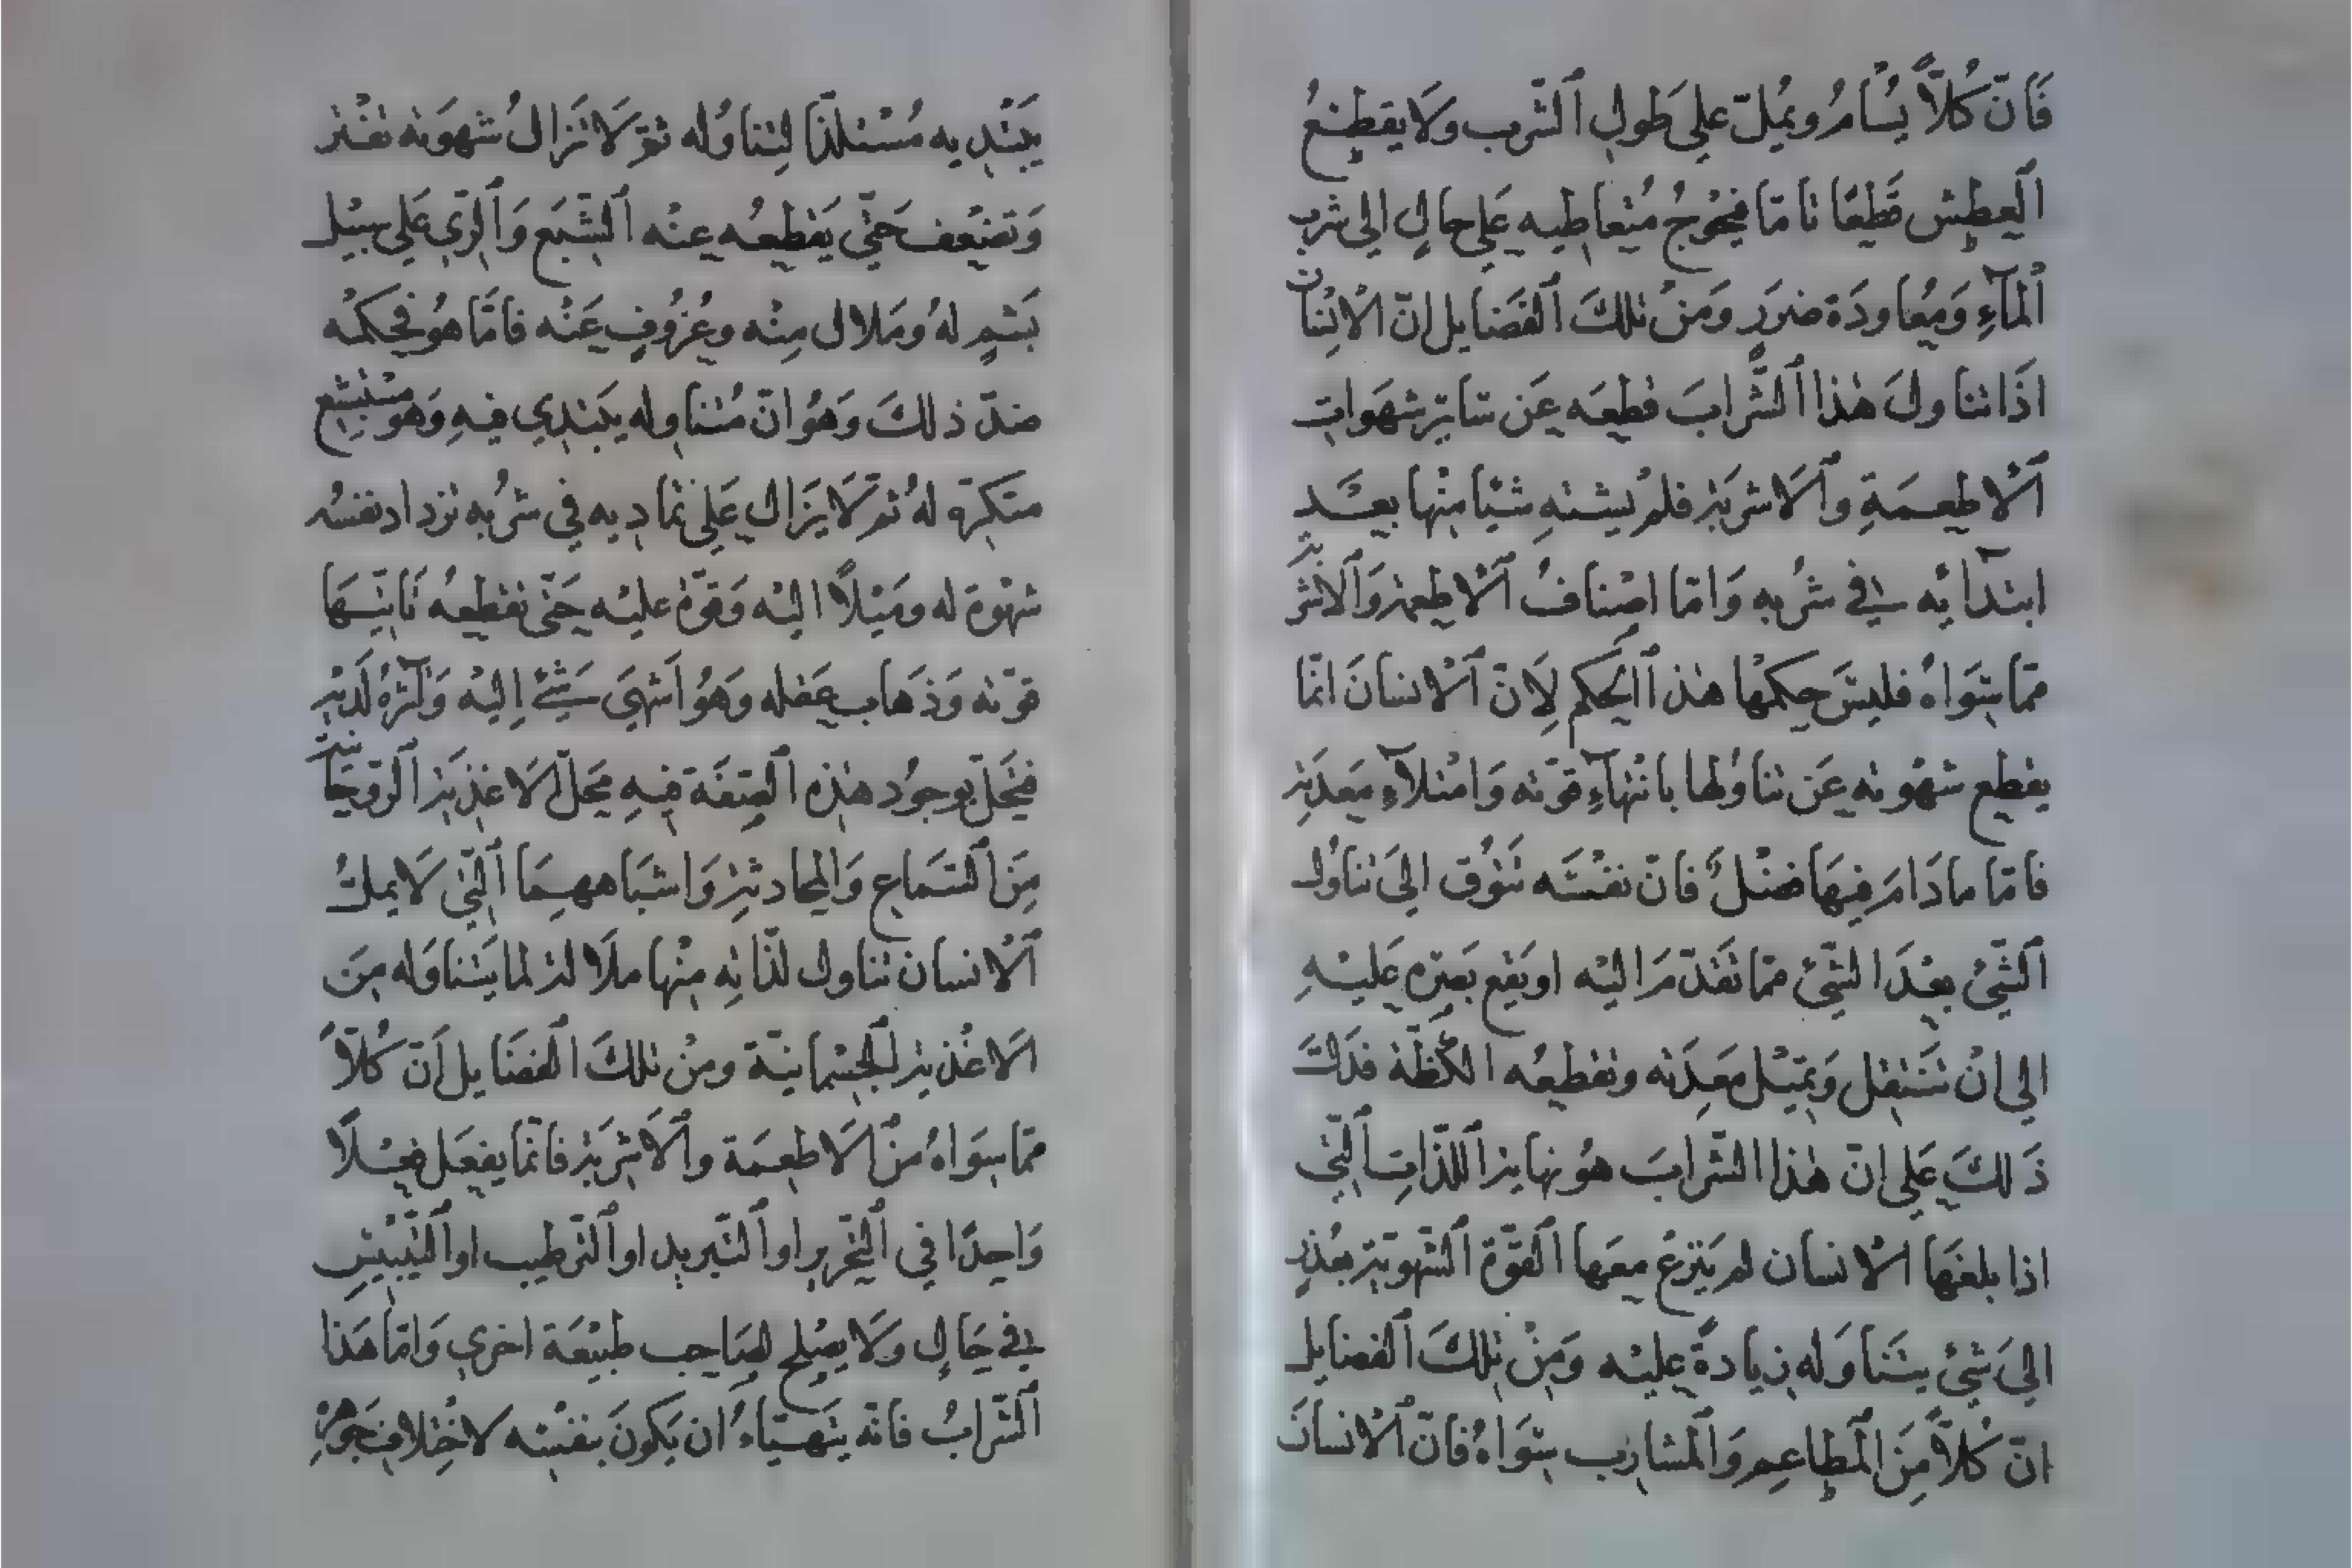 فَاِنَّ كُلاًّ يُسْأمُ ويُمَلّ عَلِى طَولِ ٱلشّرب وَلَا يقطَعُ
ٱلعطِش قَطعًا تامّا فيُحْوجُ مُتعَاطيه عَلِى حَالٍ الى شرب
ٱلمآءِ وَمُعاودَة ضرَرٍ وَمنْ تلكَ ٱلفَضايل انّ ٱلانْسَان
اذَا تناولَ هٰذا ٱلشّرابَ قطعَه عَن سَايرِ شهَواتِ
ٱلاطعِمَةِ وٱلاشربَة فلمْ يشتهِ شيْا منْها بعْدَ
ابتدآيه في شُربه وَامّا اصْنافُ ٱلاطعمة وَٱلاشربة
ممّا سِوَاهُ فليسَ حكمها هٰذ ٱالحكم لِاَنّ ٱلانسانَ انّما
يقطع شهْوته عَن تناوُلها بانتهآءِ قوّته وَامتلآءِ مَعدَته
فامّا مادَامَ فيهَا فضْلٌ فانّ نفسَه تَتُوق الىَ تناوُل
ٱلشّيْ بعْدَ الشّيْ ممّا تقَدّمَ اليْه او يَقع بصَره عَليْهِ
الي انْ تَثقل وَتميْل مَعدَته وتقطعُه الكظّة فدَلّ
ذَلكَ عَلي انّ هٰذا الشّرابَ هوُ نهاية ٱللذّاتِ ٱلّتي
اذا بلغهَا ٱلانسان لم يَنزعْ معَها ٱلقوّة ٱلشّهويّة بعُذرٍ
الىَ شيْ يتَناوَله زيادةً عليْه وَمنْ تلكَ ٱلفضايل
انّ كُلاًّ مِنَ ٱلمطاعِم وَٱلمشارب سِوَاهُ فانّ ٱلانسانَ
يَبْتدِيه مُسْتلذّا لتناوُله ثمّ لَا تَزالُ شهوَته تفْتر
وَتضْعف حَتّى يَقطعُه عنْه ٱلشّبَع وَٱلرّي عَلي سبيْل
بَشمٍ لهُ وَملالٍ مِنْه وعُزُوفٍ عَنْه فامَّا هوُ فحُكمْه
ضدّ ذلكَ وَهوُ انّ مُتناوله يَبْتدِي فيهِ وَهو مسْتبْشع
متكرّه لهُ ثمّ لَا يزَال عَلى تماديه في شربه تزداد نفسُه
شهْوة له ومَيْلاً اليْه وَقوّة عليْه حَتّى تقطعهُ تَاتيْهَا
قوّته وَذهَاب عَقله وَهوُ اَشهىَ شيْءٍ اِليْه وَآثرُهُ لَديْه
فيَحَلّ بوجوُد هٰذه ٱلصّفَة فيهِ مَحَلّ ٱلاغذيَة ٱلرّوحَانيّة
مِنَ ٱلسَّماع وَٱلمحادثة وَاشبَاههِمَا ٱلّتي لَا يملّ
ٱلانسان تناول لذّاته منْها ملَالَته لما يَتناوَله مِنَ
ٱلاغْذية ٱلجسْمانيّة ومنْ تلكَ ٱلفضَايل اَنّ كُلاًّ
ممّا سِوَاهُ منَ ٱلاطعِمَة وٱلاَشربَة فانّما يفعَل فعْلاً
وَاحِدًا في ٱلتّحْرير او ٱلتّبريد او ٱلتّرطيب او ٱلتّيبيْسِ
في حَالٍ وَلَا يصْلح لصَاحب طبيْعَة اخري وَامّا هَذا
ٱلشّرابُ فانّه يتَهيّاءُ ان يَكونَ بنفسْه لاخْتلاف جَوْهَرِه